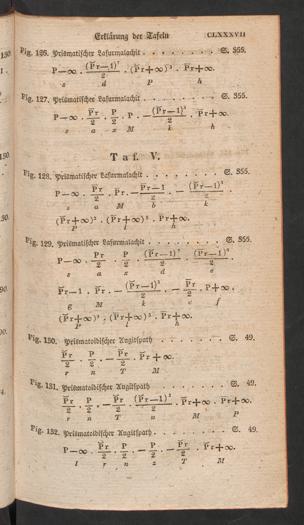 Erklärung der Tafeln CLXXXVII
Fig. 126. Prismatischer Lasurmalachit . . . . . . . . S. 355.
P—∞ . (P̆r—1)⁷/2 . (P̆r+∞)³ . P̆r+∞.
s d P h
Fig. 127. Prismatischer Lasurmalachit . . . . . . . . S. 355.
P—∞ . P̆r/2 . P/2 . P . —(P̆r—1)³/2 . P̆r+∞.
s a x M k h
Taf. V.
Fig. 128. Prismatischer Lasurmalachit . . . . . . . . S. 355.
P—∞ . P̆r/2 . P̆r . —P̆r—1/2 . —(P̆r—1)³/2 .
s a M b k
(P̆r+∞)² . (P̆r+∞)³ . P̆r+∞.
P l h
Fig. 129. Prismatischer Lasurmalachit . . . . . . . . S. 355.
P—∞ . P̆r/2 . P/2 . (P̆r—1)⁷/2 . (P̆r—1)⁹/2 .
s a x d e
P̆r—1 . P̆r . —(P̆r—1)³/2 . —P̆r/2 . P+∞ .
g M k c f
(P̆r+∞)² . (P̆r+∞)³ . P̆r+∞.
P l h
Fig. 130. Prismatoidischer Augitspath . . . . . . . . S. 49.
P̆r/2 . P/2 . —P̆r/2 . P̆r+∞.
r n T M
Fig. 131. Prismatoidischer Augitspath . . . . . . . . S. 49.
P̆r/2 . P/2 . —P̆r/2 . (P̆r—1)³/2 . P̆r+∞ . P̆r+∞.
r n T u M P
Fig. 132. Prismatoidischer Augitspath . . . . . . . . S. 49.
P—∞ . P̆r/2 . P/2 . —P/2 . —P̆r/2 . P̆r+∞.
l r n z T M